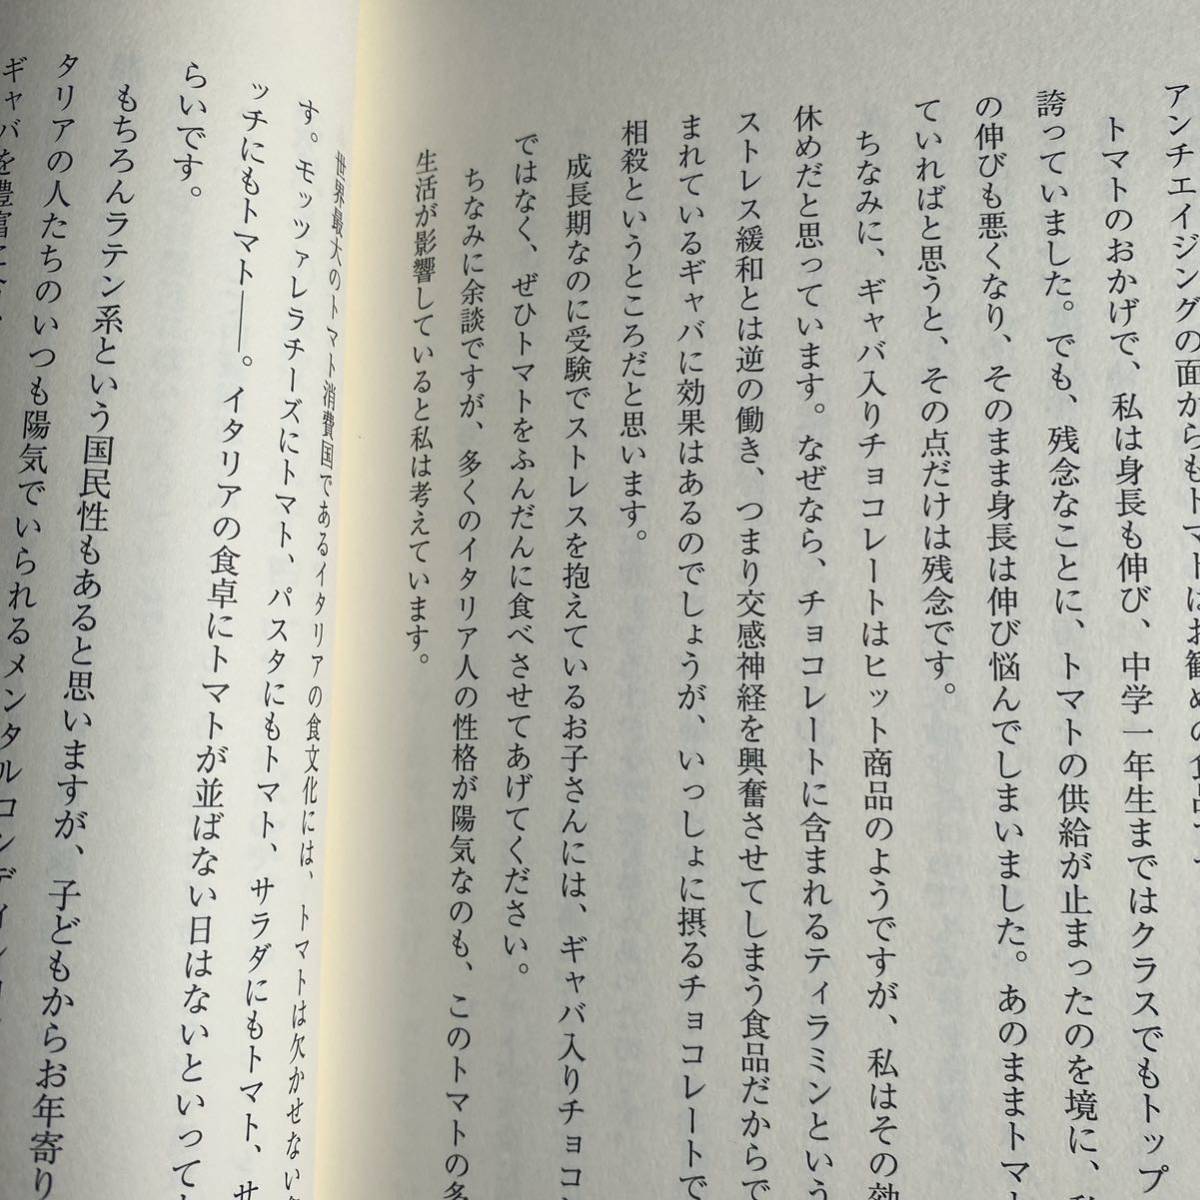 アンチエイジングの面からもトマトはお勧めの食品で
トマトのおかげで、私は身長も伸び、中学一年生まではクラスでもトップ
誇っていました。でも、残念なことに、トマトの供給が止まったのを境に、
の伸びも悪くなり、そのまま身長は伸び悩んでしまいました。あのままトマ
ていればと思うと、その点だけは残念です。
ちなみに、ギャバ入りチョコレートはヒット商品のようですが、私はその効
休めだと思っています。なぜなら、チョコレートに含まれるティラミンという
ストレス緩和とは逆の働き、つまり交感神経を興奮させてしまう食品だからで
まれているギャバに効果はあるのでしょうが、いっしょに摂るチョコレートで
相殺というところだと思います。
成長期なのに受験でストレスを抱えているお子さんには、ギャバ入りチョコ
ではなく、ぜひトマトをふんだんに食べさせてあげてください。
ちなみに余談ですが、多くのイタリア人の性格が陽気なのも、このトマトの多
生活が影響していると私は考えています。
世界最大のトマト消費国であるイタリアの食文化には、トマトは欠かせない
す。モッツァレラチーズにトマト、パスタにもトマト、サラダにもトマト、サ
ッチにもトマト――。イタリアの食卓にトマトが並ばない日はないといって
らいです。
もちろんラテン系という国民性もあると思いますが、子どもからお年寄り
タリアの人たちのいつも陽気でいられるメンタルコンディ
ギャバを豊富に